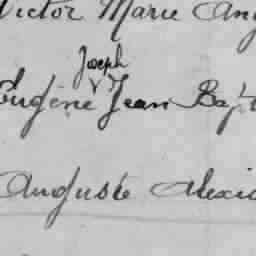 Victor Marie Ang
Joseph
Eugène Jean Bapt
Auguste Alexis